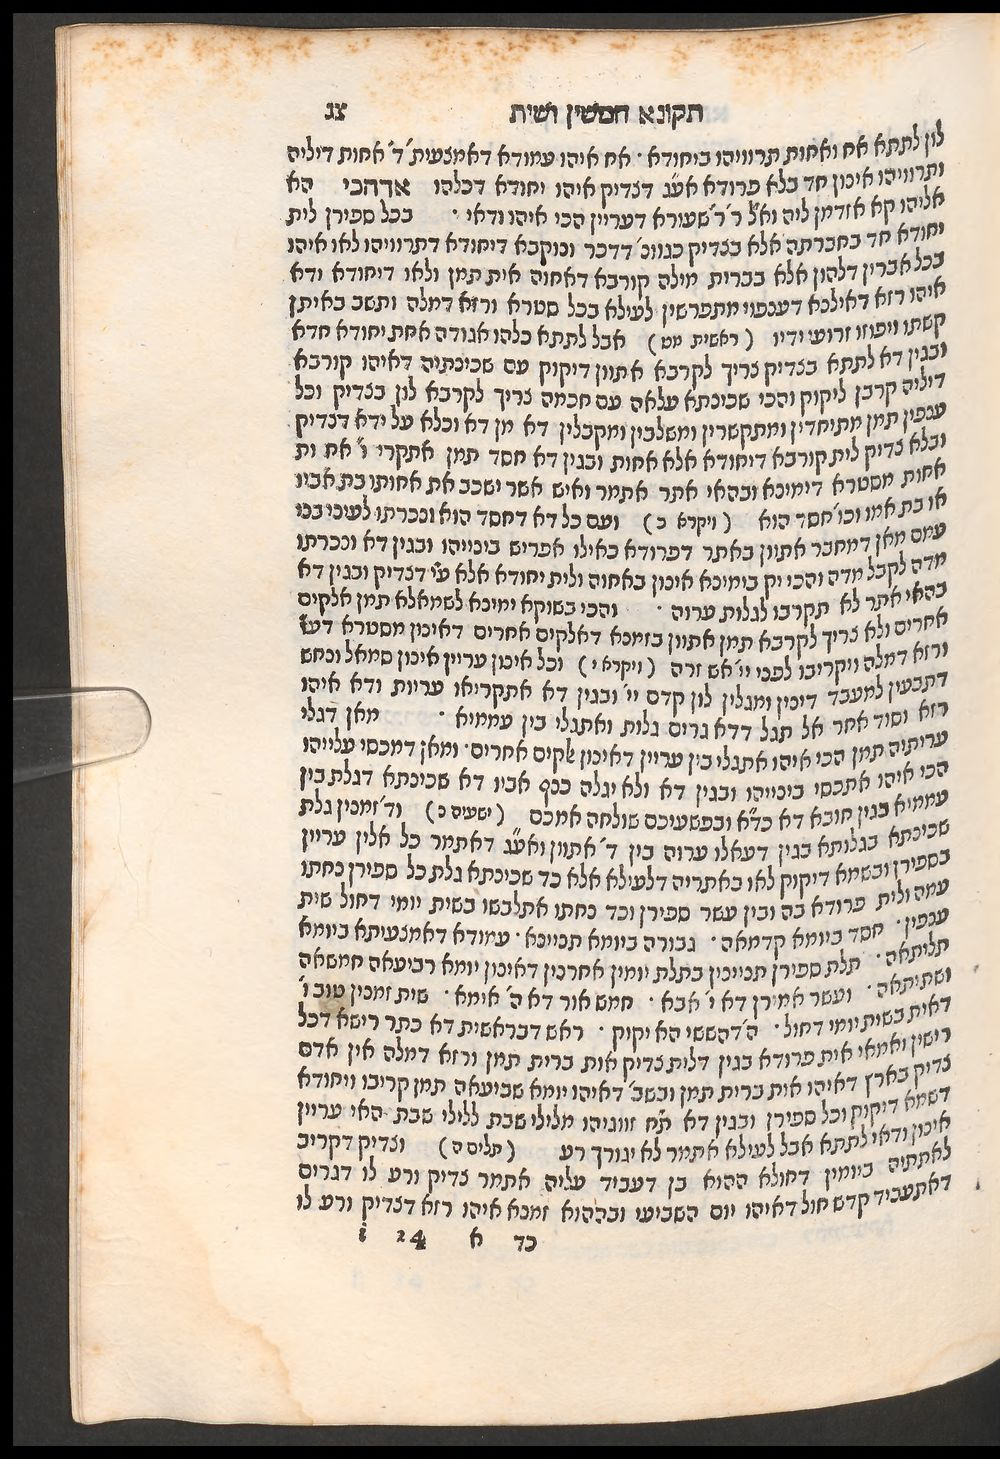 תקונא חמשין ושית צג
לון לתתא אח ואחות תרווייהו ביחודא · אח איהו עמודא דאמצעית' ד' אחות דיליה
ותרווייהו אינון חד בלא פרודא אע"ג דצדיק איהו יחודא דכלהו אדהכי הא
אליהו קא אזדמן ליה וא"ל ר' ר' שעורא דעריין הכי איהו ודאי · בכל ספירן לית
יחודא חד בחברתה אלא בצדיק כגוונ' דדכר ונוקבא דיחודא דתרווייהו לאו איהו
בכל אברין דלהון אלא בברית מילה קורבא דאחוה אית תמן ולאו דיחודא ודא
איהו רזא דאילנא דענפוי מתפרשין לעילא בכל סטרא ורזא דמלה ותשב באיתן
קשתו ויפוזו זרועי ידיו (ראשית מט) אבל לתתא כלהו אגודה אחת יחודא חדא
ובגין דא לתתא בצדיק צריך לקרבא אתוון דיקוק עם שכינתיה דאיהו קורבא
דיליה קרבן ליקוק והכי שכינתא עלאה עם חכמה צריך לקרבא לון בצדיק וכל
ענפין תמן מתיחדין ומתקשרין ומשלבין ומקבלין דא מן דא וכלא על ידא דצדיק
ובלא צדיק לית קורבא דיחודא אלא אחות ובגין דא חסד תמן אתקרי ו' אח ות
אחות מסטרא דימינא ובהאי אתר אתמר ואיש אשר ישכב את אחותו בת אביו
או בת אמו וכו' חסד הוא (ויקרא כ) ועם כל דא דחסד הוא ונכרתו לעיני בני
עמם מאן דמחבר אתוון באתר דפרודא כאילו אפריש בינייהו ובגין דא ונכרתו
מדה לקבל מדה והכי יק בימינא אינון באחוה ולית יחודא אלא ע"י דצדיק ובגין דא
בהאי אתר לא תקרבו לגלות ערוה · והכי בשוקא ימינא לשמאלא תמן אלקים
אחרים ולא צריך לקרבא תמן אתוון בזמנא דאלקים אחרים דאינון מסטרא דע"ז
ורזא דמלה ויקריבו לפני יי' אש זרה (ויקרא י) וכל אינון עריין אינון סמאל ונחש
דתבעין למעבד דינין ומגלין לון קדם יי' ובגין דא אתקריאו עריות ודא איהו
רזא וסוד אחר אל תגל דדא גרים גלות ואתגלי בין עממיא · מאן דגלי
ערותיה תמן הכי איהו אתגלי בין עריין דאינון אלקים אחרים · ומאן דמכסי עלייהו
הכי איהו אתכסי בינייהו ובגין דא ולא יגלה כנף אביו דא שכינתא דגלת בין
עממיא בגין חובא דא כד"א ובפשעיכם שולחה אמכם (ישעיה נ) וד' זמנין גלת
שכינתא בגלותא בגין דעאלו ערוה בין ד' אתוון ואע"ג דאתמר כל אלין עריין
בספירן ובשמא דיקוק לאו באתריה דלעילא אלא כד שכינתא גלת כל ספירן נחתו
עמה ולית פרודא בה ובין עשר ספירן וכד נחתו אתלבשו בשית יומי דחול שית
ענפין · חסד ביומא קדמאה · גבורה ביומא תניינא · עמודא דאמצעיתא ביומא
תליתאה · תלת ספירן תניינין בתלת יומין אחרנין דאינון יומא רביעאה חמשאה
ושתיתאה · ועשר אמירן דא י' אבא · חמש אור דא ה' אימא · שית זמנין טוב ו'
דאית בשית יומי דחול · ה' דהששי הא יקוק · ראש דבראשית דא כתר רישא דכל
רישין ואמאי אית פרודא בגין דלית צדיק אות ברית תמן ורזא דמלה אין אדם
צדיק בארץ דאיהו אות ברית תמן ובשב' דאיהו יומא שביעאה תמן קריבו ויחודא
דשמא דיקוק וכל ספירן ובגין דא ת"ח זווגייהו מלילי שבת ללילי שבת האי עריין
אינון ודאי לתתא אבל לעילא אתמר לא יגורך רע (תלים ה) וצדיק דקריב
לאתתיה ביומין דחולא ההוא בן דעביד עליה אתמר צדיק ורע לו דגרים
דאתעביד קדש חול דאיהו יום השביעי ובההוא זמנא איהו רזא דצדיק ורע לו
כד א 24 i